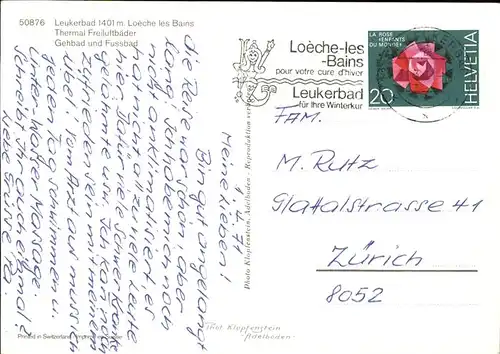 50876 Leukerbad 1401 m. Loèche les Bains
Thermal Freiluftbäder
Gehbad und Fussbad
Loèche-les
-Bains
pour votre cure d'hiver
Leukerbad
für Ihre Winterkur
LA ROSE
«ENFANTS
DU MONDE»
20
HELVETIA
FAM.
M. Rutz
Glattalstrasse 41
Zürich
8052
1. 4. 71
Meine Lieben!
Bin gut angelangt
die Reise war schön, aber
lang. Ich habe mich noch
nicht anklimatisiert, es
hier. Dafür viele schwer kranke
gelähmte usw. Ich kann noch
zufrieden sein mit meinem
Übel! Vom Arzt aus muss ich
jeden Tag schwimmen u.
Unter Wasser Massage.
Schreibt Ihr auch einmal?
Liebe Grüsse
Photo Klopfenstein, Adelboden - Reproduktion verboten
Phot Klopfenstein
-Adelboden-
Printed in Switzerland